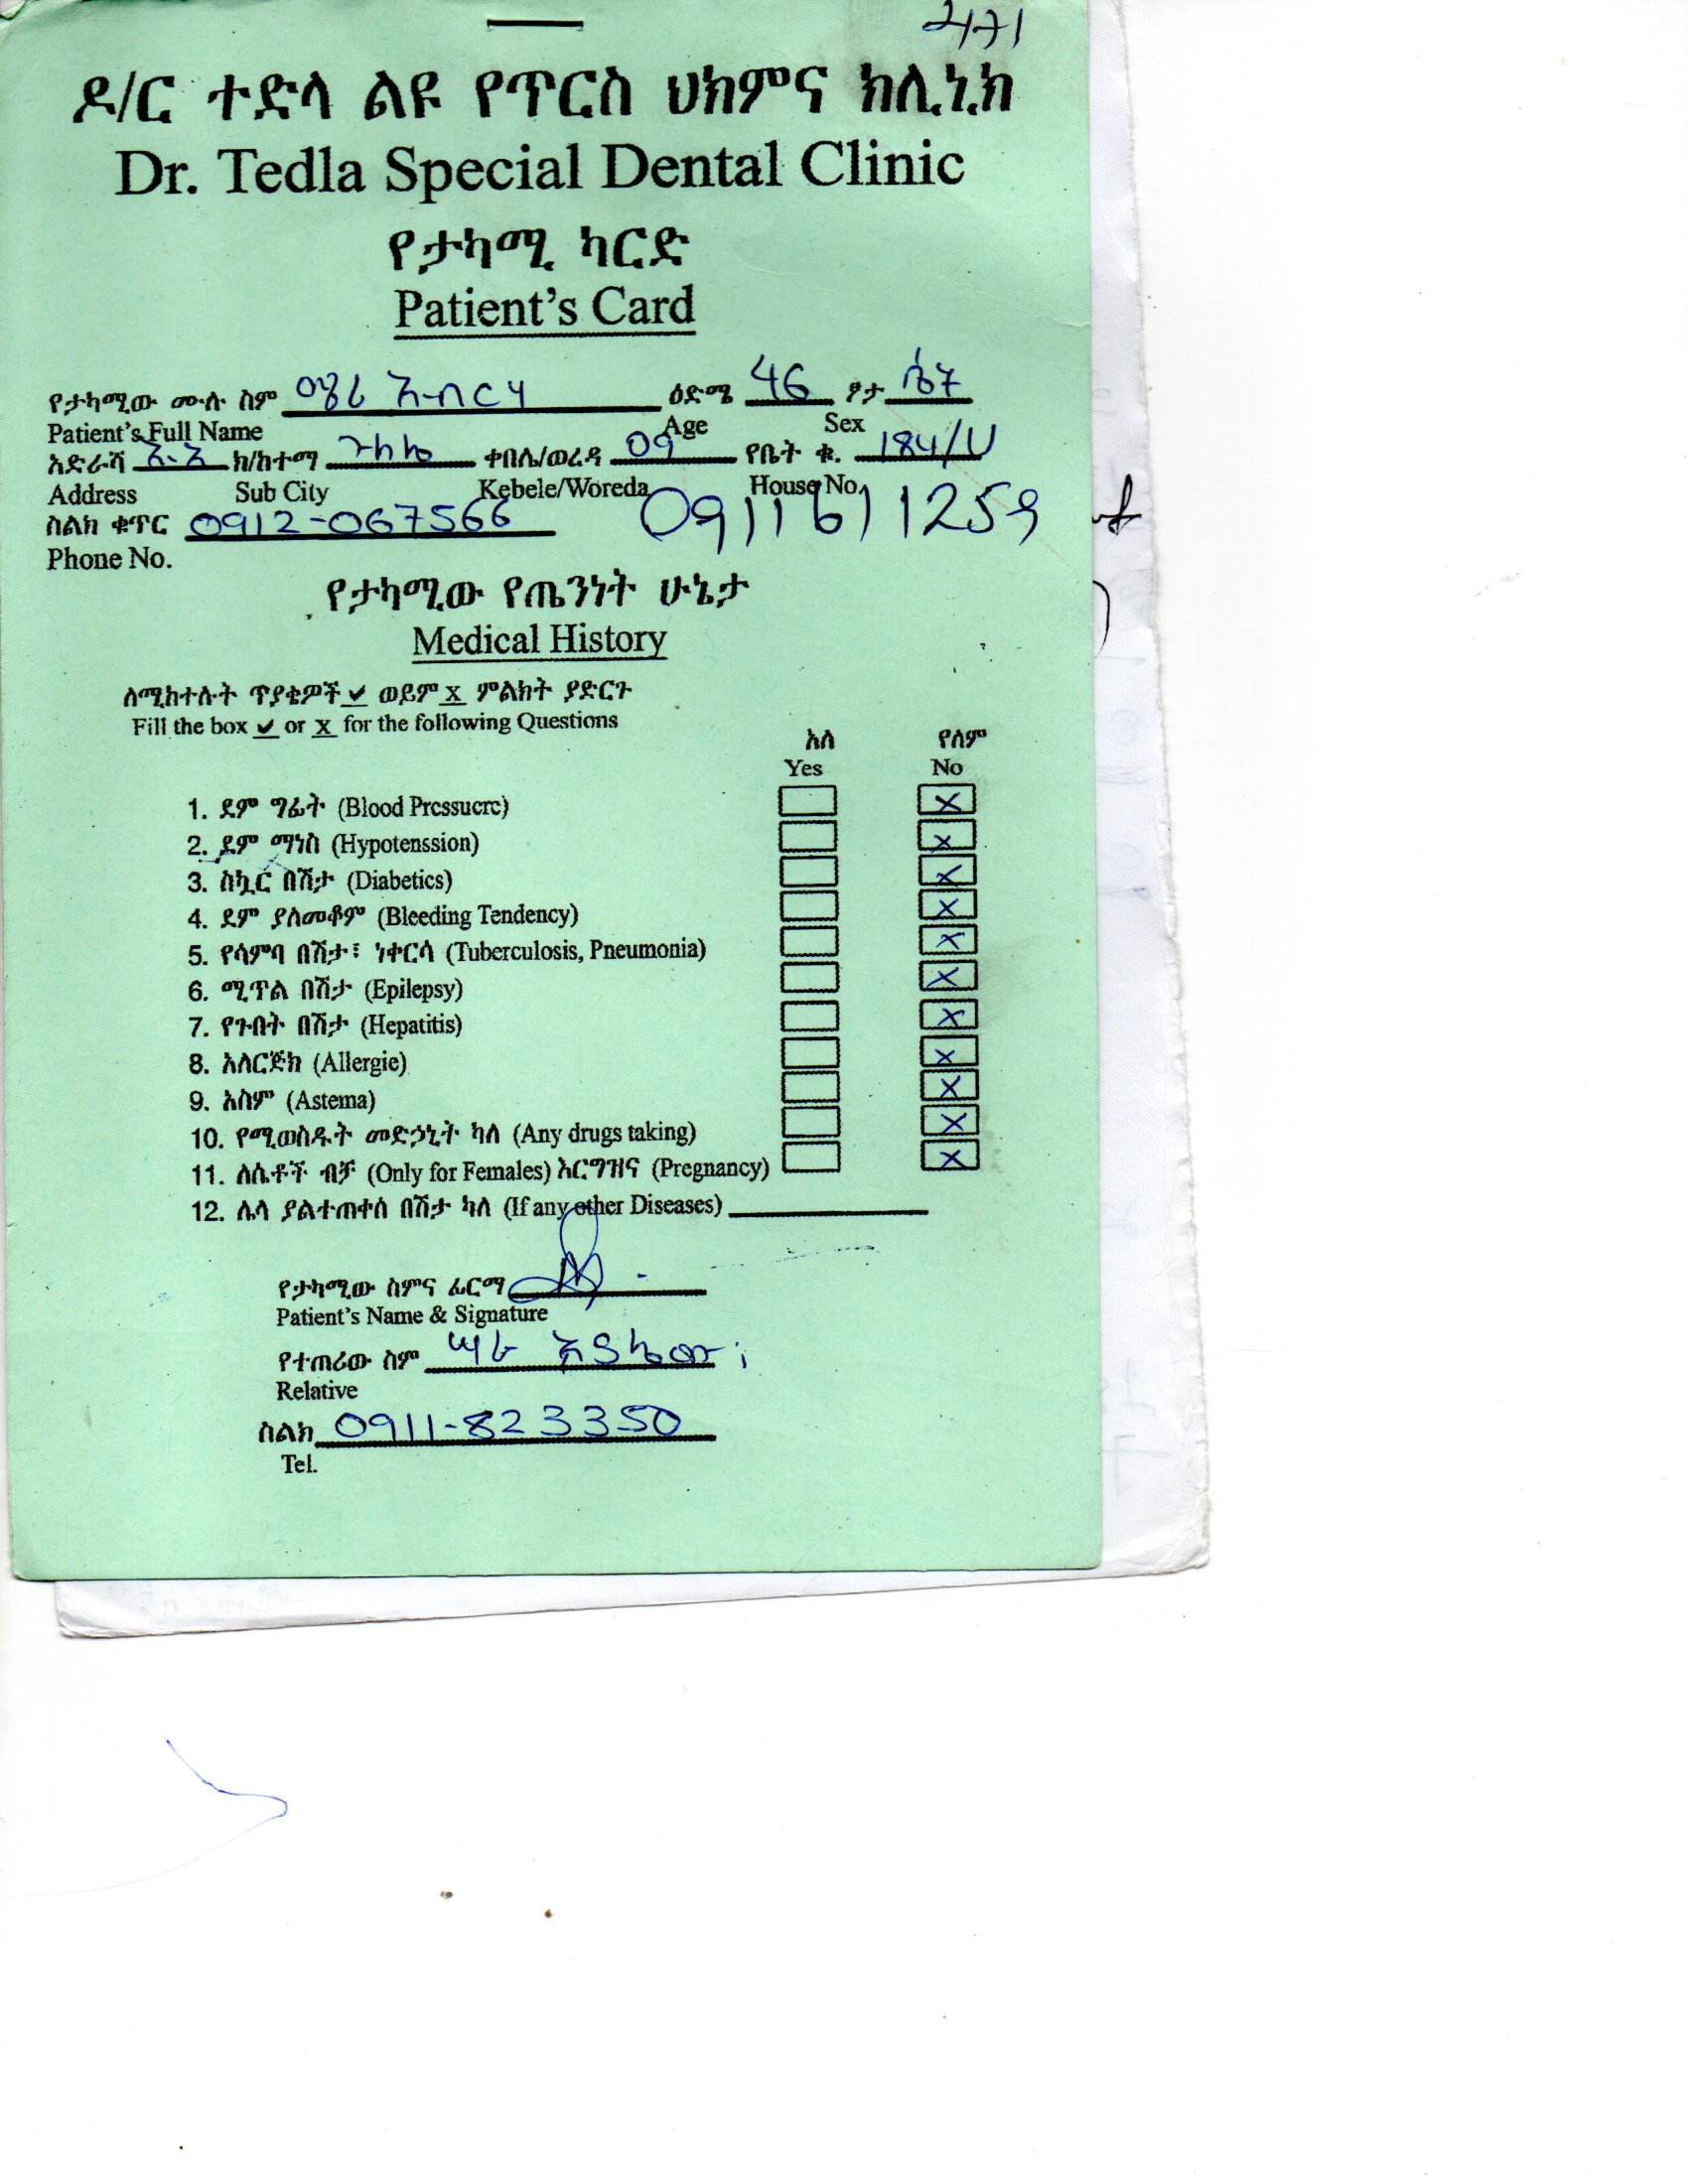 2471
ዶ/ር ተድላ ልዩ የጥርስ ህክምና ክሊኒክ
Dr. Tedla Special Dental Clinic
የታካሚ ካርድ
Patient's Card
የታካሚው ሙሉ ስም ዕድሜ 46 ፆታ ሴት
Patient's Full Name Age Sex
አድራሻ አ.አ ክ/ከተማ ጉለሌ ቀበሌ/ወረዳ 09 የቤት ቁ. 184/ሀ
Address Sub City Kebele/Woreda House No.
ስልክ ቁጥር 0912-067566 0911611259
Phone No.
የታካሚው የጤንነት ሁኔታ
Medical History
ለሚከተሉት ጥያቄዎች ✔ ወይም x ምልክት ያድርጉ
Fill the box ✔ or x for the following Questions
አለ የለም
Yes No
1. ደም ግፊት (Blood Pressuere) x
2. ደም ማነስ (Hypotenssion) x
3. ስኳር በሽታ (Diabetics) x
4. ደም ያለመቆም (Bleeding Tendency) x
5. የሳምባ በሽታ፣ ነቀርሳ (Tuberculosis, Pneumonia) x
6. ሚጥል በሽታ (Epilepsy) x
7. የጉበት በሽታ (Hepatitis) x
8. አለርጅክ (Allergie) x
9. አስም (Astema) x
10. የሚወስዱት መድኃኒት ካለ (Any drugs taking) x
11. ለሴቶች ብቻ (Only for Females) እርግዝና (Pregnancy) x
12. ሌላ ያልተጠቀሰ በሽታ ካለ (If any other Diseases)
የታካሚው ስምና ፊርማ
Patient's Name & Signature
የተጠሪው ስም ሣራ
Relative
ስልክ 0911-823350
Tel.